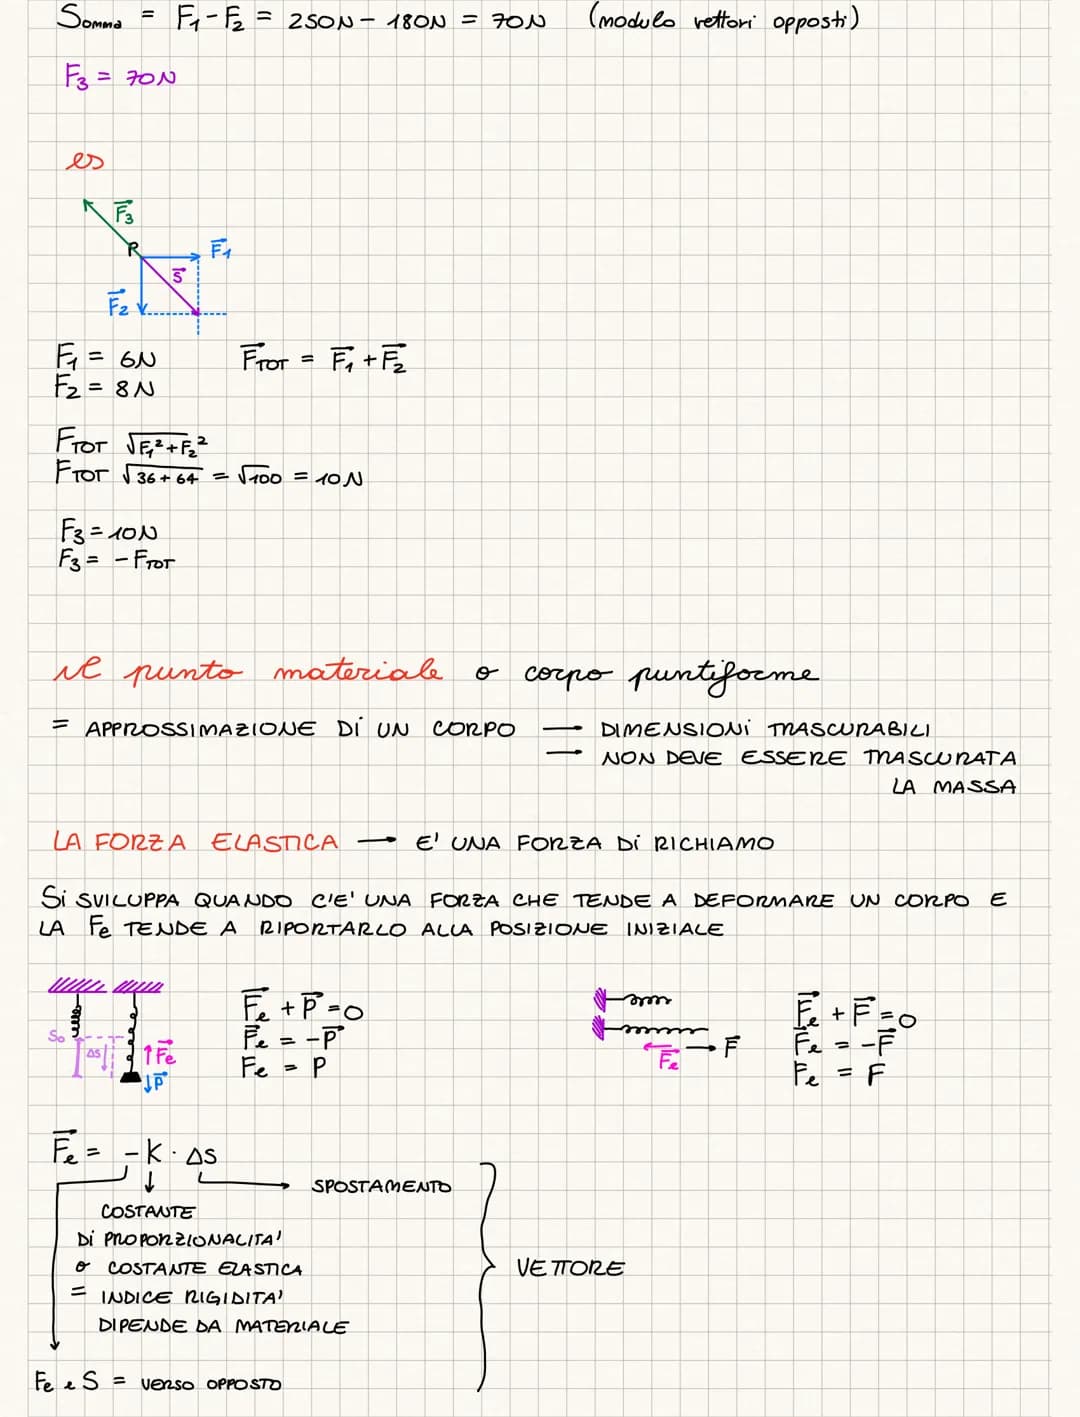 Somma = F₁-F₂ = 250N - 180N = 70N (modulo vettori opposti)
F₃ = 70N
es
F⃗₃
P
F⃗₁
s⃗
F⃗₂
F₁ = 6N F⃗TOT = F⃗₁ + F⃗₂
F₂ = 8N
FTOT √F₁²+F₂²
FTOT √36+64 = √100 = 10N
F₃ = 10N
F₃ = -FTOT
Il punto materiale o corpo puntiforme
= APPROSSIMAZIONE Di UN CORPO — DIMENSIONi TRASCURABILI
— NON DEVE ESSERE TRASCURATA
LA MASSA
LA FORZA ELASTICA → E' UNA FORZA Di RICHIAMO
Si SVILUPPA QUANDO C'E' UNA FORZA CHE TENDE A DEFORMARE UN CORPO E
LA Fe TENDE A RIPORTARLO ALLA POSIZIONE INIZIALE
F⃗e + P⃗ = 0 F⃗e + F⃗ = 0
S₀ F⃗e = -P⃗ F⃗e = -F⃗
ΔS ↑F⃗e Fe = P F⃗e → F Fe = F
↓P⃗
F⃗e = -K · ΔS
SPOSTAMENTO
COSTANTE
Di PROPORZIONALITA'
o COSTANTE ELASTICA VETTORE
= INDICE RIGIDITA'
DIPENDE DA MATERIALE
Fe e S = VERSO OPPOSTO